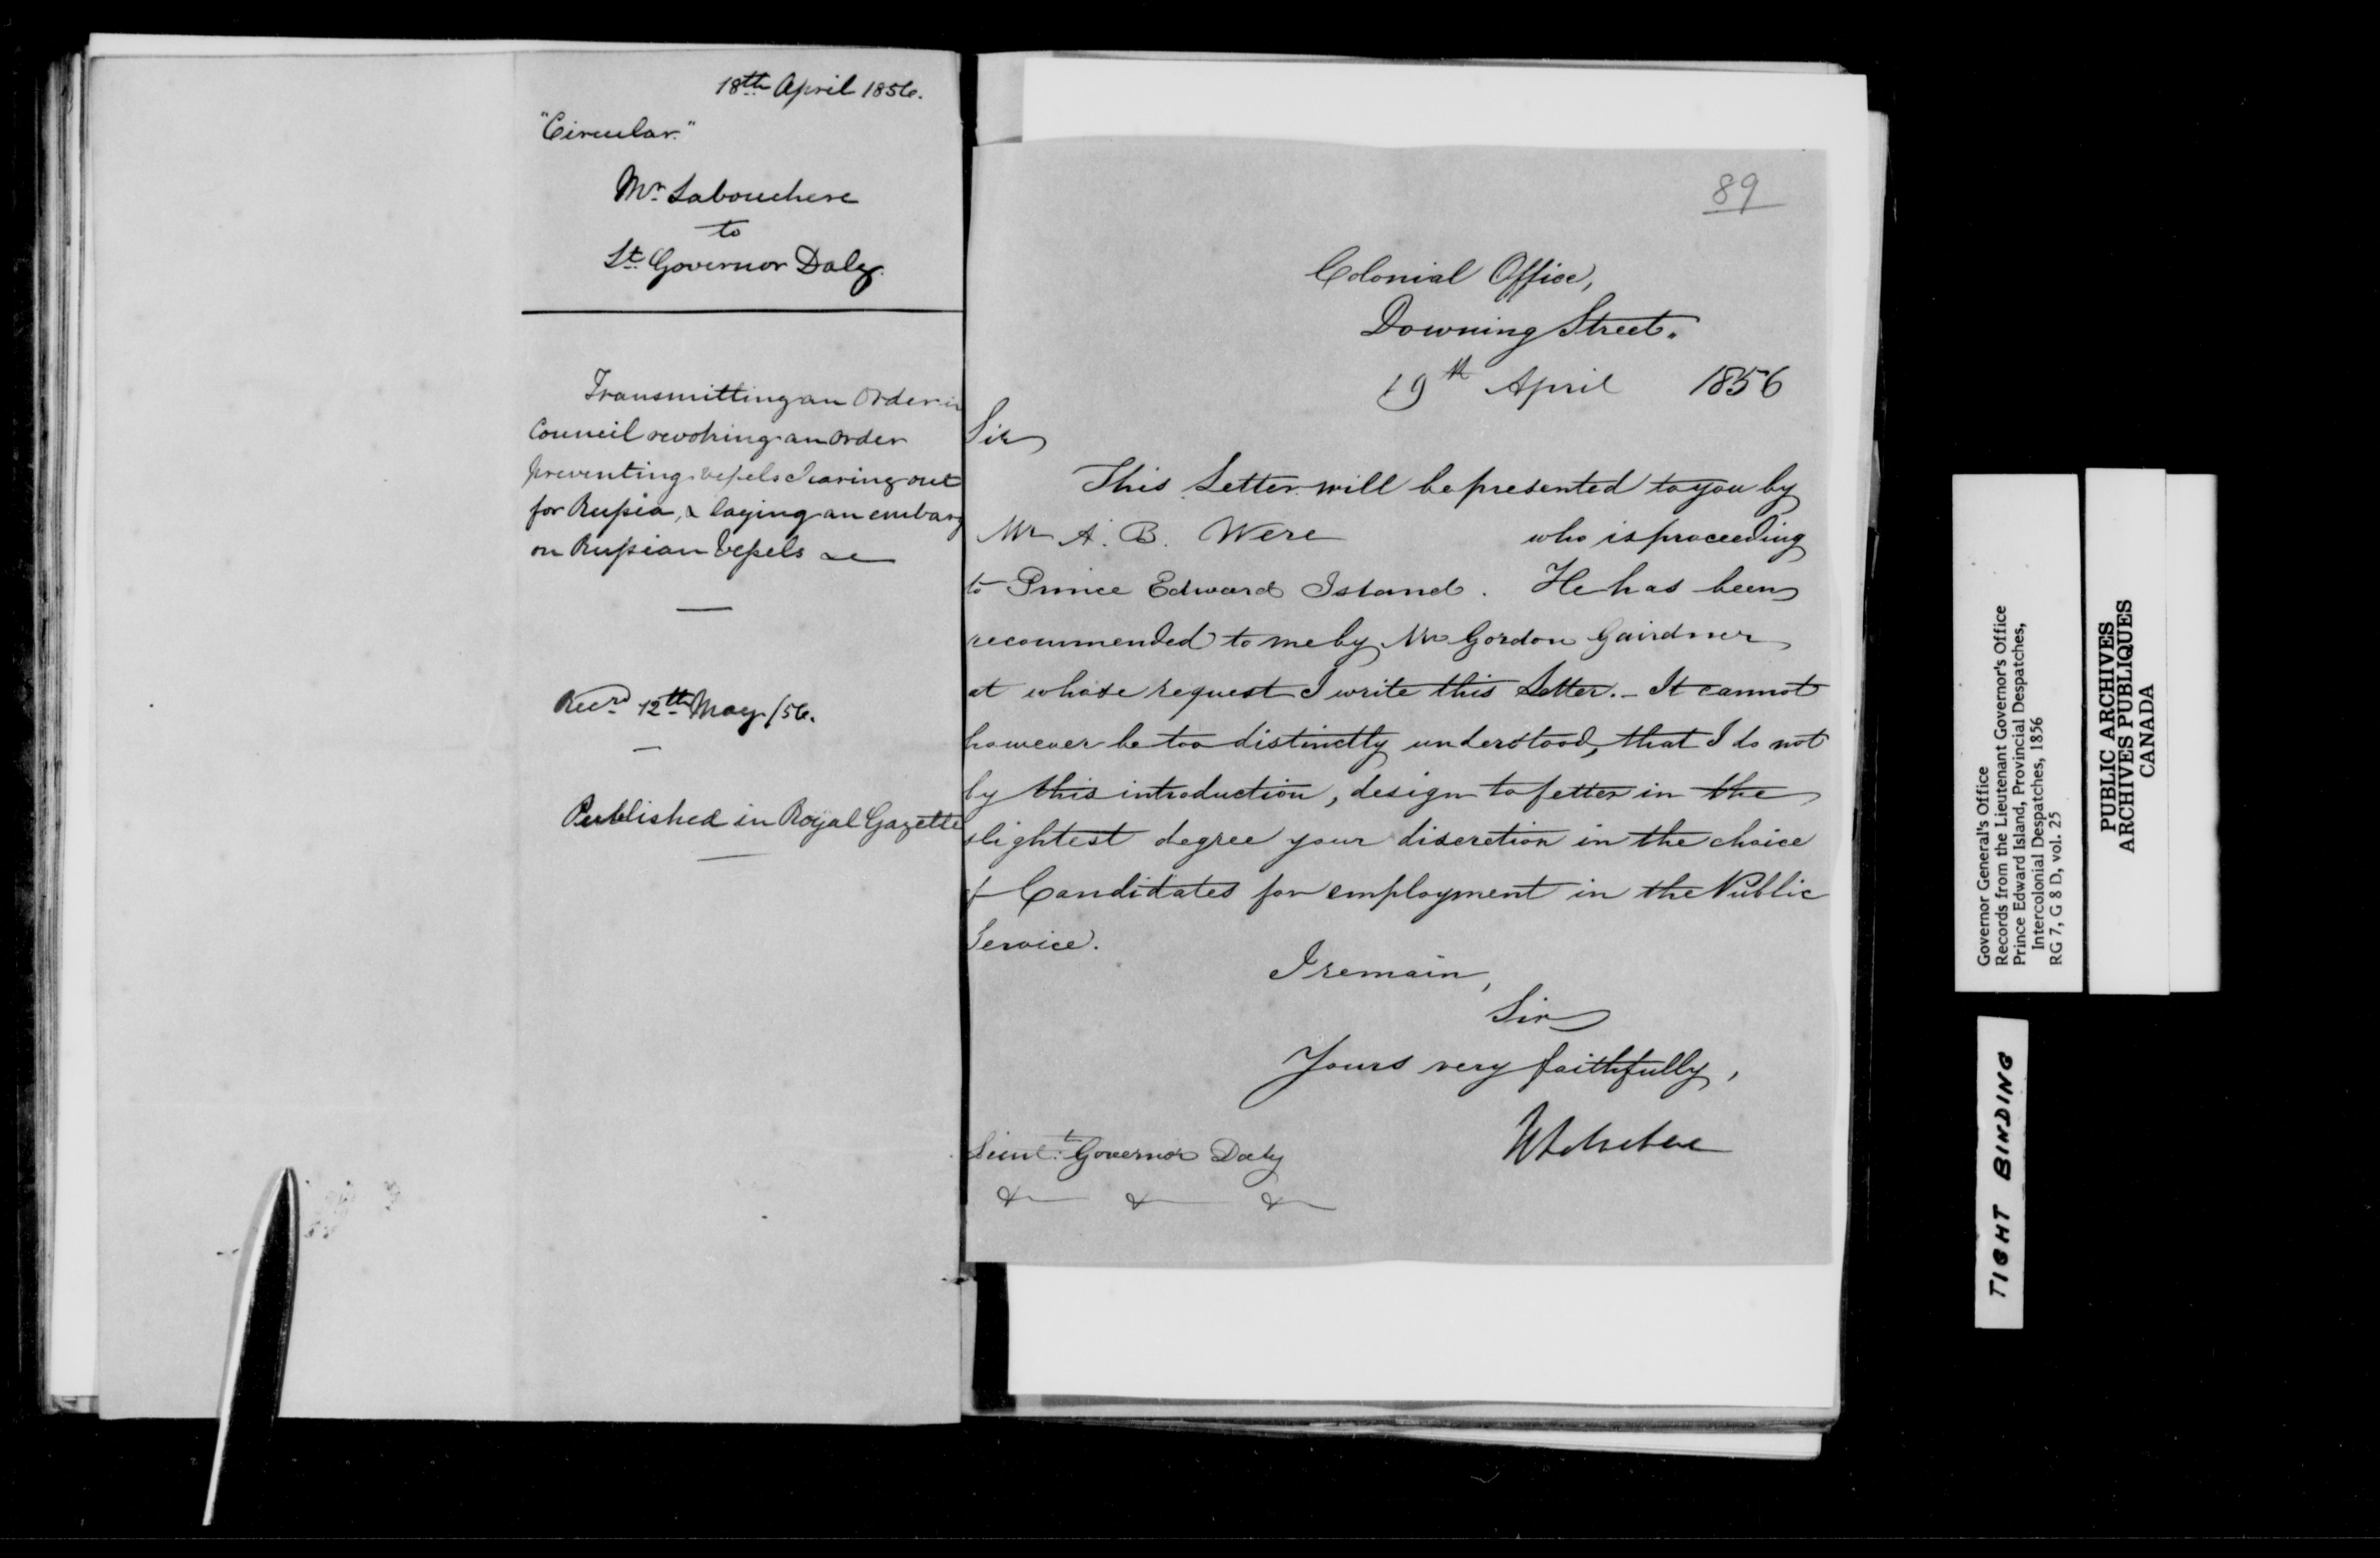 18th April 1856.
"Circular."
Mr. Labouchere
to
Lt. Governor Daly.
Transmitting an Order in
Council revoking an order
preventing vessels clearing out
for Russia, & laying an embarg
on Russian Vessels &c
Recd. 12th May /56.
Published in Royal Gazette
89
Colonial Office,
Downing Street.
19th April 1856
Sir
This Letter will be presented to you by
Mr A. B. Were who is proceeding
to Prince Edward Island. He has been
recommended to me by Mr Gordon Gairdner
at whose request I write this Letter. - It cannot
however be too distinctly understood, that I do not
by this introduction, design to fetter in the
slightest degree your discretion in the choice
of Candidates for employment in the Public
Service.
I remain,
Sir
Yours very faithfully,
Lieut. Governor Daly
&c &c &c
Governor General's Office
Records from the Lieutenant Governor's Office
Prince Edward Island, Provincial Despatches,
Intercolonial Despatches, 1856
RG 7, G 8 D, vol. 25
PUBLIC ARCHIVES
ARCHIVES PUBLIQUES
CANADA
TIGHT BINDING